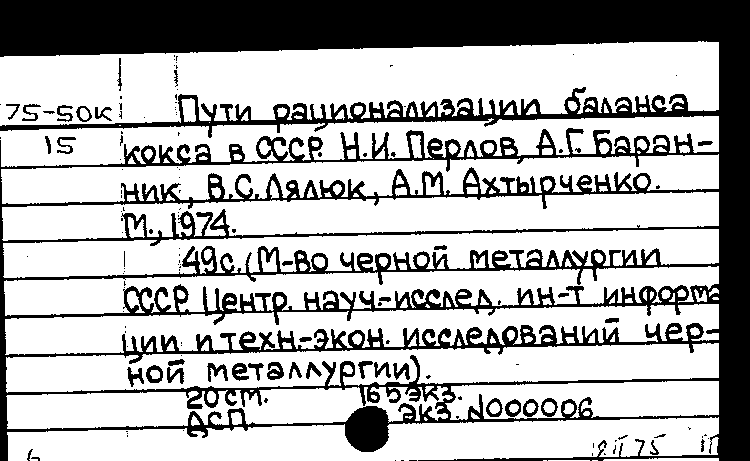 75-50к Пути рационализации баланса
15 кокса в СССР. Н.И. Перлов, А.Г. Баран-
ник, В.С. Лялюк, А.М. Ахтырченко.
М., 1974.
49с. (М-во черной металлургии
СССР. Центр. науч.-исслед. ин-т информа
ции и техн.-экон. исследований чер-
ной металлургии).
20 cm. 165 экз.
ДСП. экз. №000006
6 18 II 75